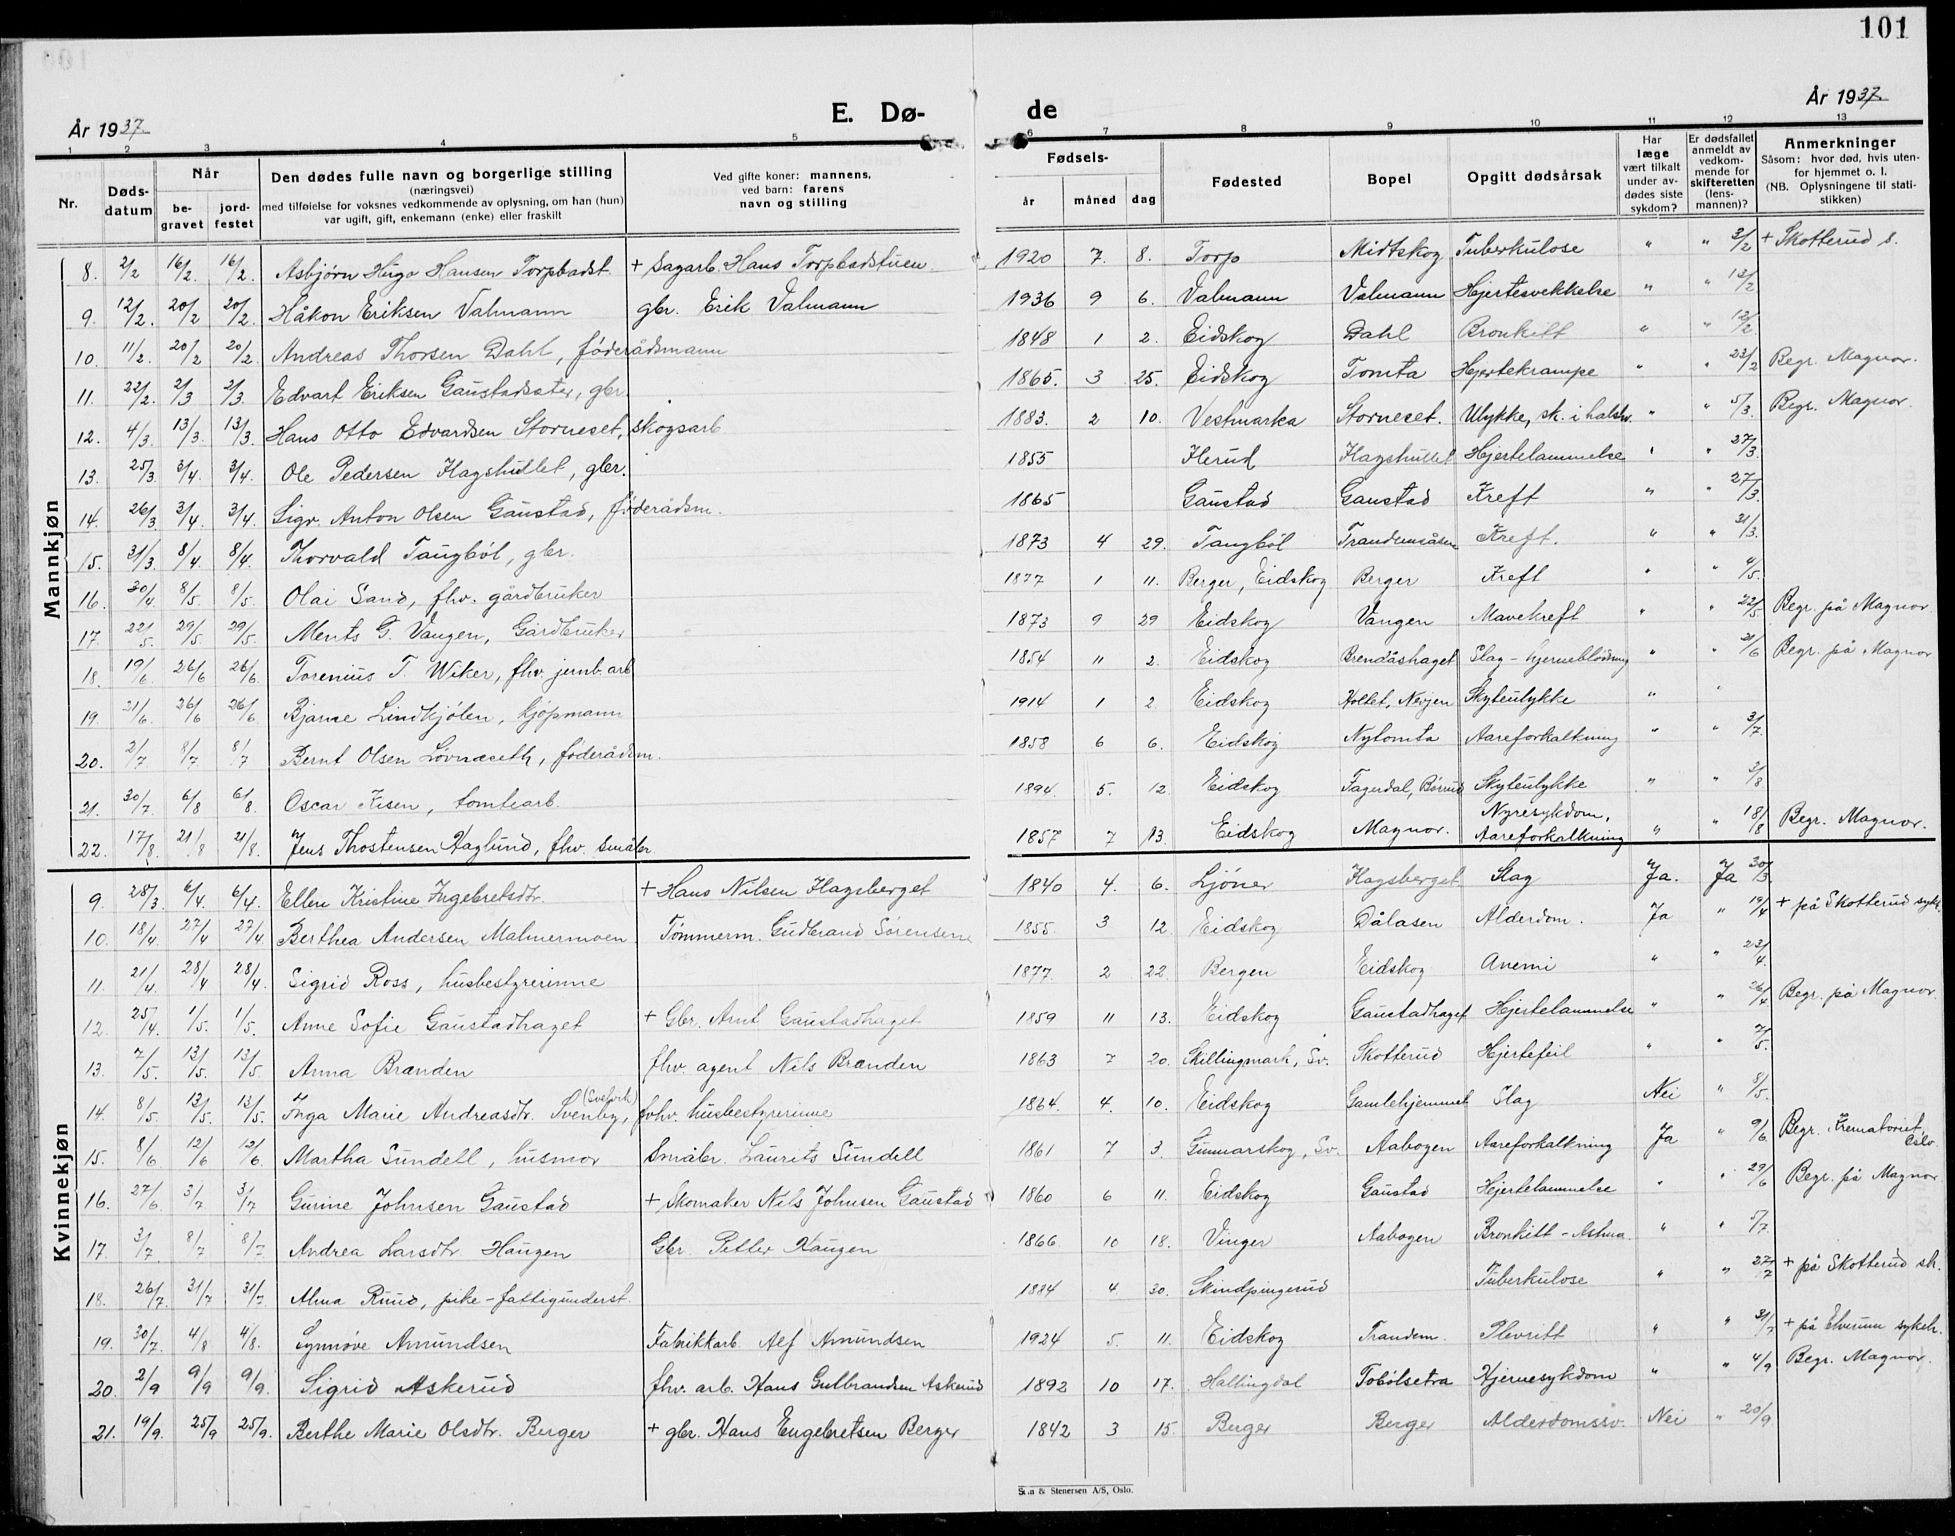 101
År 1937.
E. Dø-
de
År 1937.
1 2 3 4 5 6 7 8 9 10 11 12 13
Nr.
Døds-
datum
Når
be-
gravet
jord-
festet
Den dødes fulle navn og borgerlige stilling
(næringsvei)
med tilføielse for voksnes vedkommende av oplysning, om han (hun)
var ugift, gift, enkemann (enke) eller fraskilt
Ved gifte koner: mannens,
ved barn: farens
navn og stilling
Fødsels-
år måned dag
Fødested
Bopel
Opgitt dødsårsak
Har
læge
vært tilkalt
under av-
dødes siste
sykdom?
Er dødsfallet
anmeldt av
vedkom-
mende for
skifteretten
(lens-
mannen)?
Anmerkninger
Såsom: hvor død, hvis uten-
for hjemmet o. l.
(NB. Oplysningene til stati-
stikken)
Mannkjøn
8. 2/2 16/2. 16/2. Asbjørn Hugo Hansen Torpbadst. + Sagarb. Hans Torpbadstuen. 1920 7. 8. Torp Midtskog Tuberkulose " " 3/2 + Skotterud s.
9. 12/2. 20/2 20/2. Håkon Eriksen Valmann gbr. Erik Valmann 1936 9 6. Valmann Valmann Hjertesvekkelse " " 12/2
10. 11/2. 20/2 20/2. Andreas Thorsen Dahl, føderådsmann 1848 1 2. Eidskog Dahl Bronkitt " " 12/2
11. 22/2. 2/3 2/3. Edvart Eriksen Gaustadsæter, gbr. 1865. 3 25. Eidskog Tomta Hjertekrampe " " 23/2 Begr. Magnor.
12. 4/3. 13/3. 13/3. Hans Otto Edvardsen Storneset, skogsarb. 1883. 2 10. Vestmarka Storneset. Ulykke, sk. i halshv. " " 5/3. Begr. Magnor.
13. 25/3 3/4. 3/4. Ole Pedersen Flagshultet, gbr. 1855 Herud Flagshultet Hjertelammelse " " 27/3.
14. 26/3 3/4. 3/4. Sigv. Anton Olsen Gaustad, føderådsm. 1865 Gaustad Gaustad Kreft " " 27/3.
15. 31/3. 8/4 8/4. Thorvald Taugbøl, gbr. 1873 4 29. Taugbøl Trandemsåsen Kreft. " " 31/3.
16. 30/4. 8/5 8/5. Olai Sand, fhv. gårdbruker 1877 1 11. Berger, Eidskog Berger Kreft " " 4/5.
17. 22/5. 29/5 29/5. Ments G. Vangen, Gårdbruker 1873 9 29 Eidskog Vangen Mavekreft " " 22/5 Begr. på Magnor.
18. 19/6. 26/6 26/6. Torenius T. Wiker, fhv. jernb. arb. 1854 11 2. Eidskog Brendåshaget Slag - hjerneblødning " " 21/6 Begr. på Magnor
19. 21/6. 26/6 26/6. Bjarne Lindkjølen, kjøpmann 1914 1 2 Eidskog Holtet, Nevjen Skyteulykke " "
20. 2/7 8/7. 8/7 Bernt Olsen Løvnæseth, føderådsm. 1858 6 6. Eidskog Nytomta Aareforkalkning " " 3/7.
21. 30/7. 6/8 6/8. Oscar Risen, tomtearb. 1894. 5. 12. Eidskog Fagerdal, Børrud Skyteulykke " " 2/8
22. 17/8. 21/8 21/8. Jens Thostensen Haglund, fhv. småbr. 1857 7 13. Eidskog Magnor. Nyresykdom, Aareforkalkning " " 18/8 Begr. Magnor.
Kvinnekjøn
9. 28/3 6/4. 6/4. Ellen Kristine Ingebretsdtr. + Hans Nilsen Flagsberget 1840 4. 6. Ljøner Flagsberget Slag Ja. Ja 30/3.
10. 18/4. 27/4 27/4. Berthea Andersen Malmermoen Tømmerm. Gudbrand Sørensen 1855. 3 12. Eidskog Dålasen Alderdom. Ja " 19/4 + på Skotterud sykh.
11. 21/4. 28/4 28/4. Sigrid Ross, husbestyrerinne 1877. 2 22. Bergen Eidskog Anemi " " 23/4.
12. 25/4. 1/5. 1/5. Anne Sofie Gaustadhaget + Gbr. Arnt Gaustadhaget 1859 11 13. Eidskog Gaustadhaget Hjertelammelse " " 26/4 Begr. på Magnor.
13. 7/5. 13/5. 13/5 Anna Branden fhv. agent Nils Branden 1863 7 20. Skillingmark, Sv. Skotterud Hjertefeil " " 7/5.
14. 8/5. 13/5. 13/5. Inga Marie Andreasdtr. Svenby, fvhv. husbestyrerinne 1864. 4. 10. Eidskog Gamlehjemmet Slag Nei " 8/5.
15. 8/6 12/6 12/6. Martha Sundell, husmor Småbr. Laurits Sundell 1861 7 3. Gunnarskog, Sv. Aabogen Aareforkalkning Ja " 9/6 Begr. Krematoriet, Oslo.
16. 27/6. 3/7 3/7 Gurine Johnsen Gaustad + Skomaker Nils Johnsen Gaustad 1860 6 11. Eidskog Gaustad Hjertelammelse " " 29/6 Begr. på Magnor.
17. 3/7. 8/7 8/7. Andrea Larsdtr. Haugen Gbr. Petter Haugen 1866 10 18. Vinger Aabogen Bronkitt - Astma. " " 5/7.
18. 26/7. 31/7 31/7. Alma Ruud, pike - fattigunderst. 1884 4 30. Skindpungerud Tuberkulose " " 27/7 + på Skotterud sk.
19. 30/7. 4/8 4/8. Synnøve Amundsen Fabrikkarb. Alf Amundsen 1924 5 11. Eidskog Trandem. Plevritt " " 31/7 + på Elverum sykeh.
20. 2/9 9/9 9/9. Sigrid Askerud fhv. arb. Hans Gulbrandsen Askerud 1892 10 17. Hallingdal Tobølsetra Hjernesykdom " " 4/9 Begr. Magnor.
21. 19/9. 25/9 25/9. Berthe Marie Olsdtr. Berger + gbr. Hans Engebretsen Berger 1842 3 15. Berger Berger Alderdomssv. Nei " 20/9
& Stenersen A/S, Oslo.